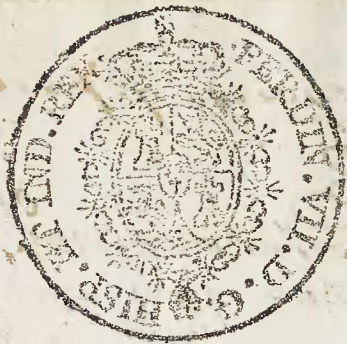 FERDIN·VII·D·G·HISP·ET IND·REX·